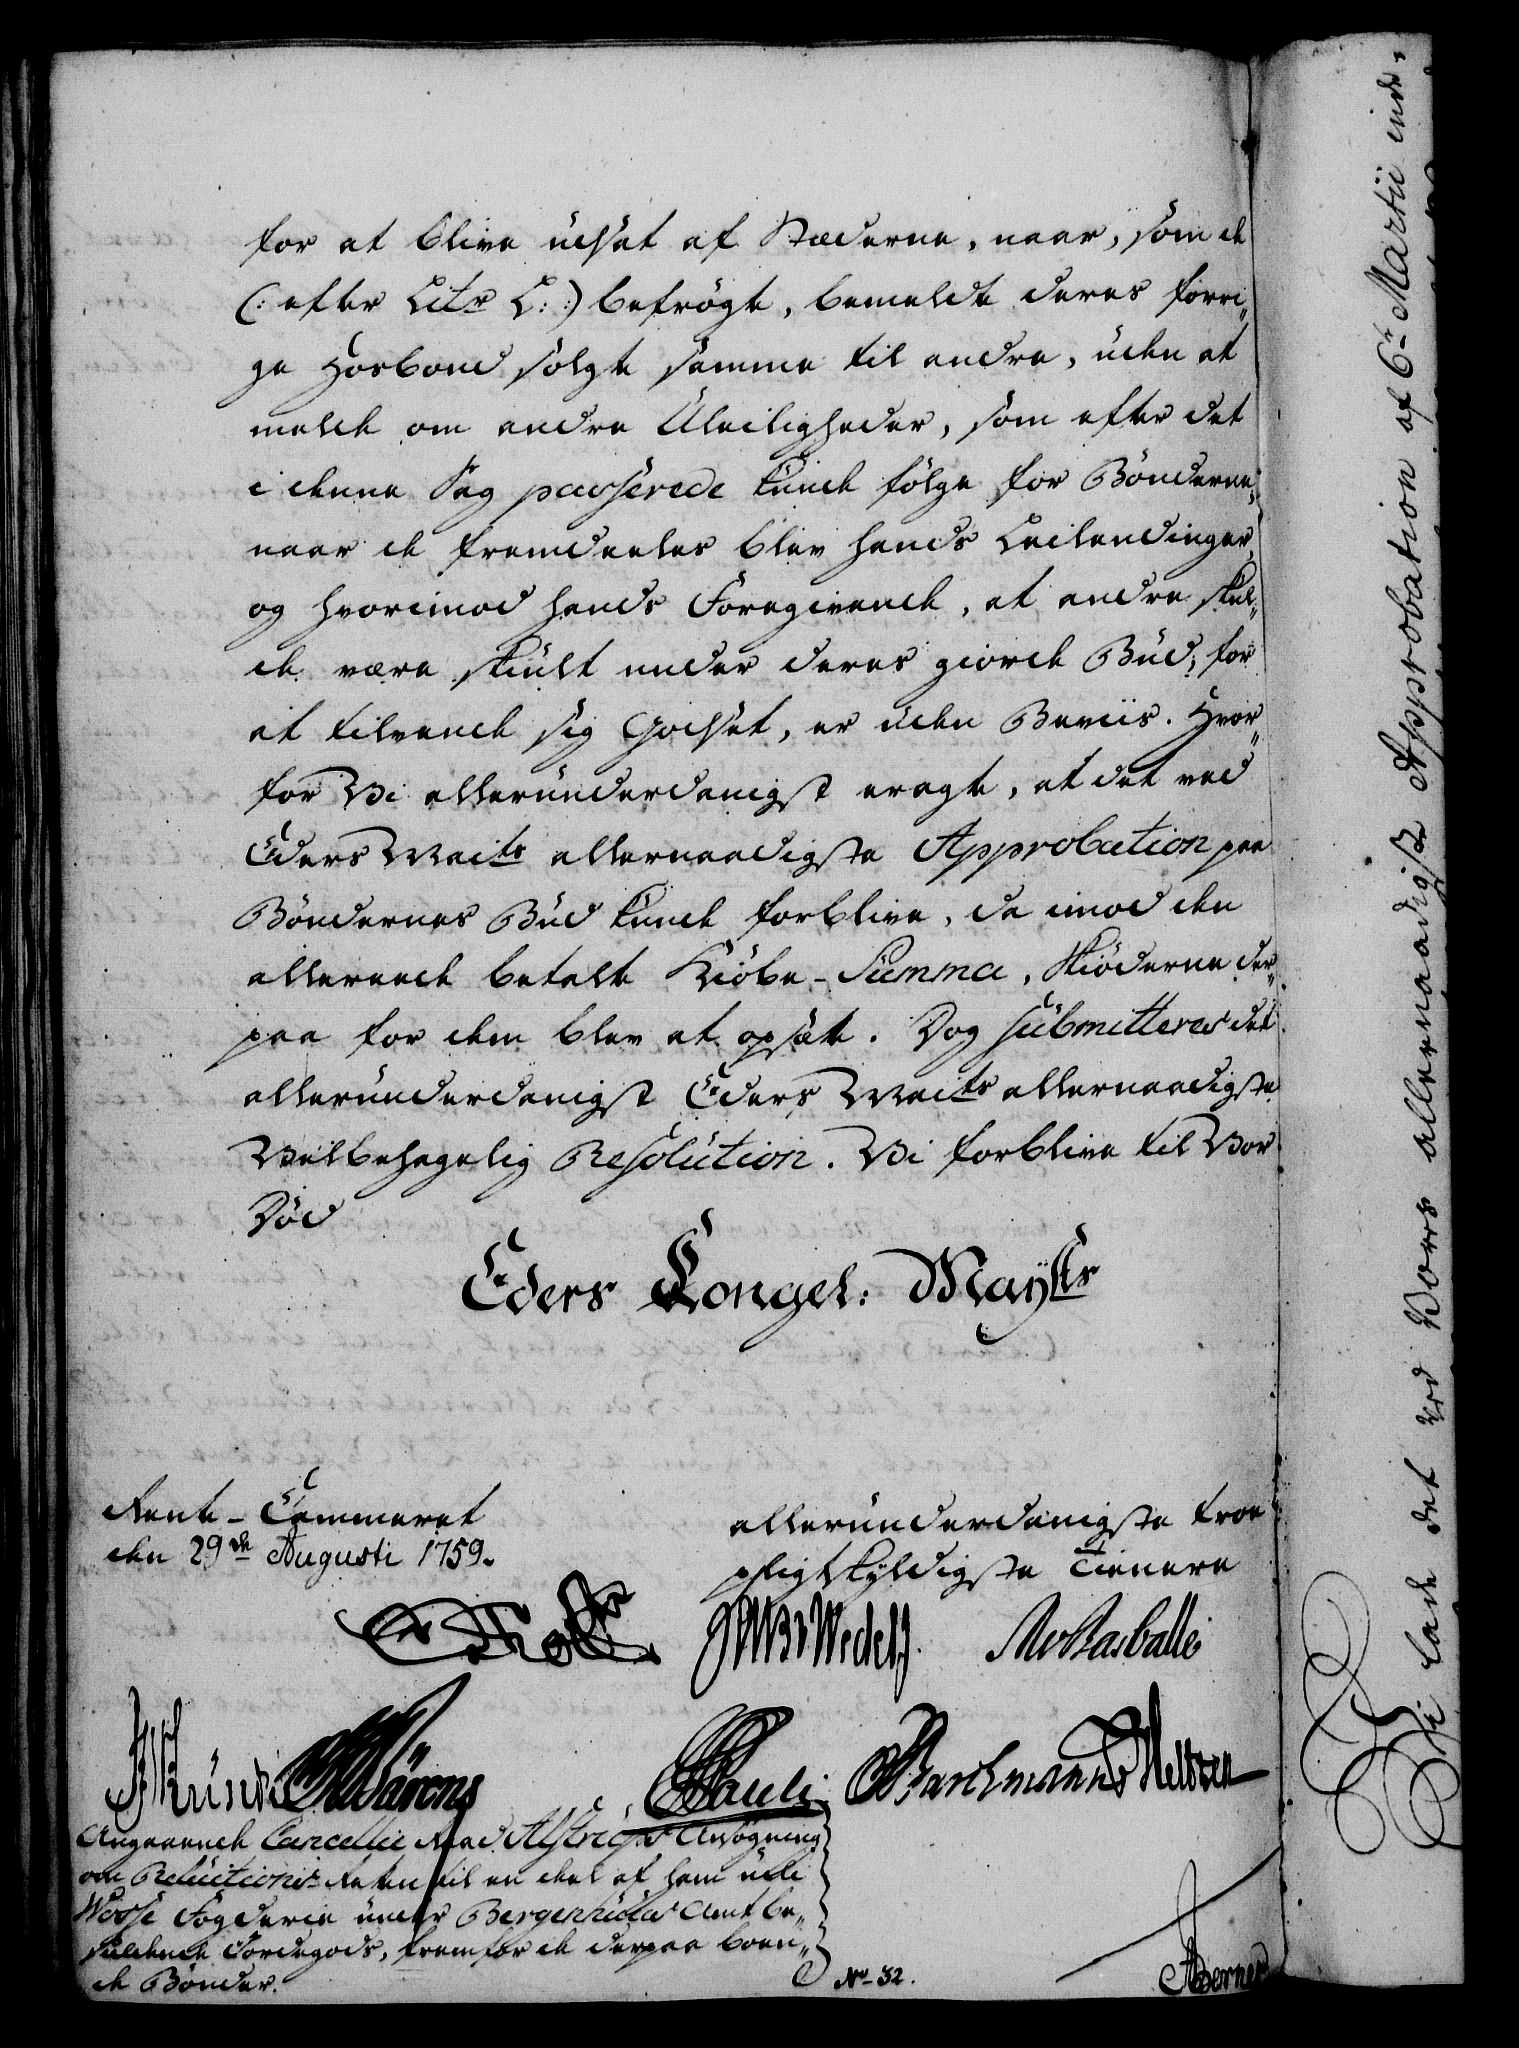 for at blive udsat af Stæderne, naar, som de
(: efter Litr L: :) befrögte, bemeldte deres forri„
ge Hosbond solgte samme til andre, uden at
melde om andre Uleiligheder, som efter det
i denne Sag passerede kunde fölge for Bönderne„
naar de fremdeeles blev hands Leilendinger,
og hvorimod hands Foregivende, at andre skul„
de være skiult under deres giorde Bud, for
at tilvende sig Godset, er uden Beviis. Hvor„
for Vi allerunderdanigst eragte, at det ved
Eders Maits allernaadigste Approbation paa
Böndernes Bud kunde forblive, da imod den
allerede betalte Kiöbe-Summa, Skiöderne der„
paa for dem blev at opsætte. Dog submitteres det
allerunderdanigst Eders Maits allernaadigste
Velbehagelig Resolution. Vi forblive til Vor
Död
Eders Kongel: Mayts
Rente-Cammeret
den 29de Augusti 1759.
allerunderdanigste troe
pligtskyldigste Tienere
Holck Wedell
Pauli Barchmann
Angaaende Cancellie Raad Ansögning
om Reluitions Retten til en deel af ham udi
Wosse Fogderie under Bergenhuus Amt be„
siddende Jordegods, fremfor de derpaa boen„
de Bönder.
No 32.
Berner
Vi lade det ved Vores allernaadigste Approbation af 6te Martii inde„